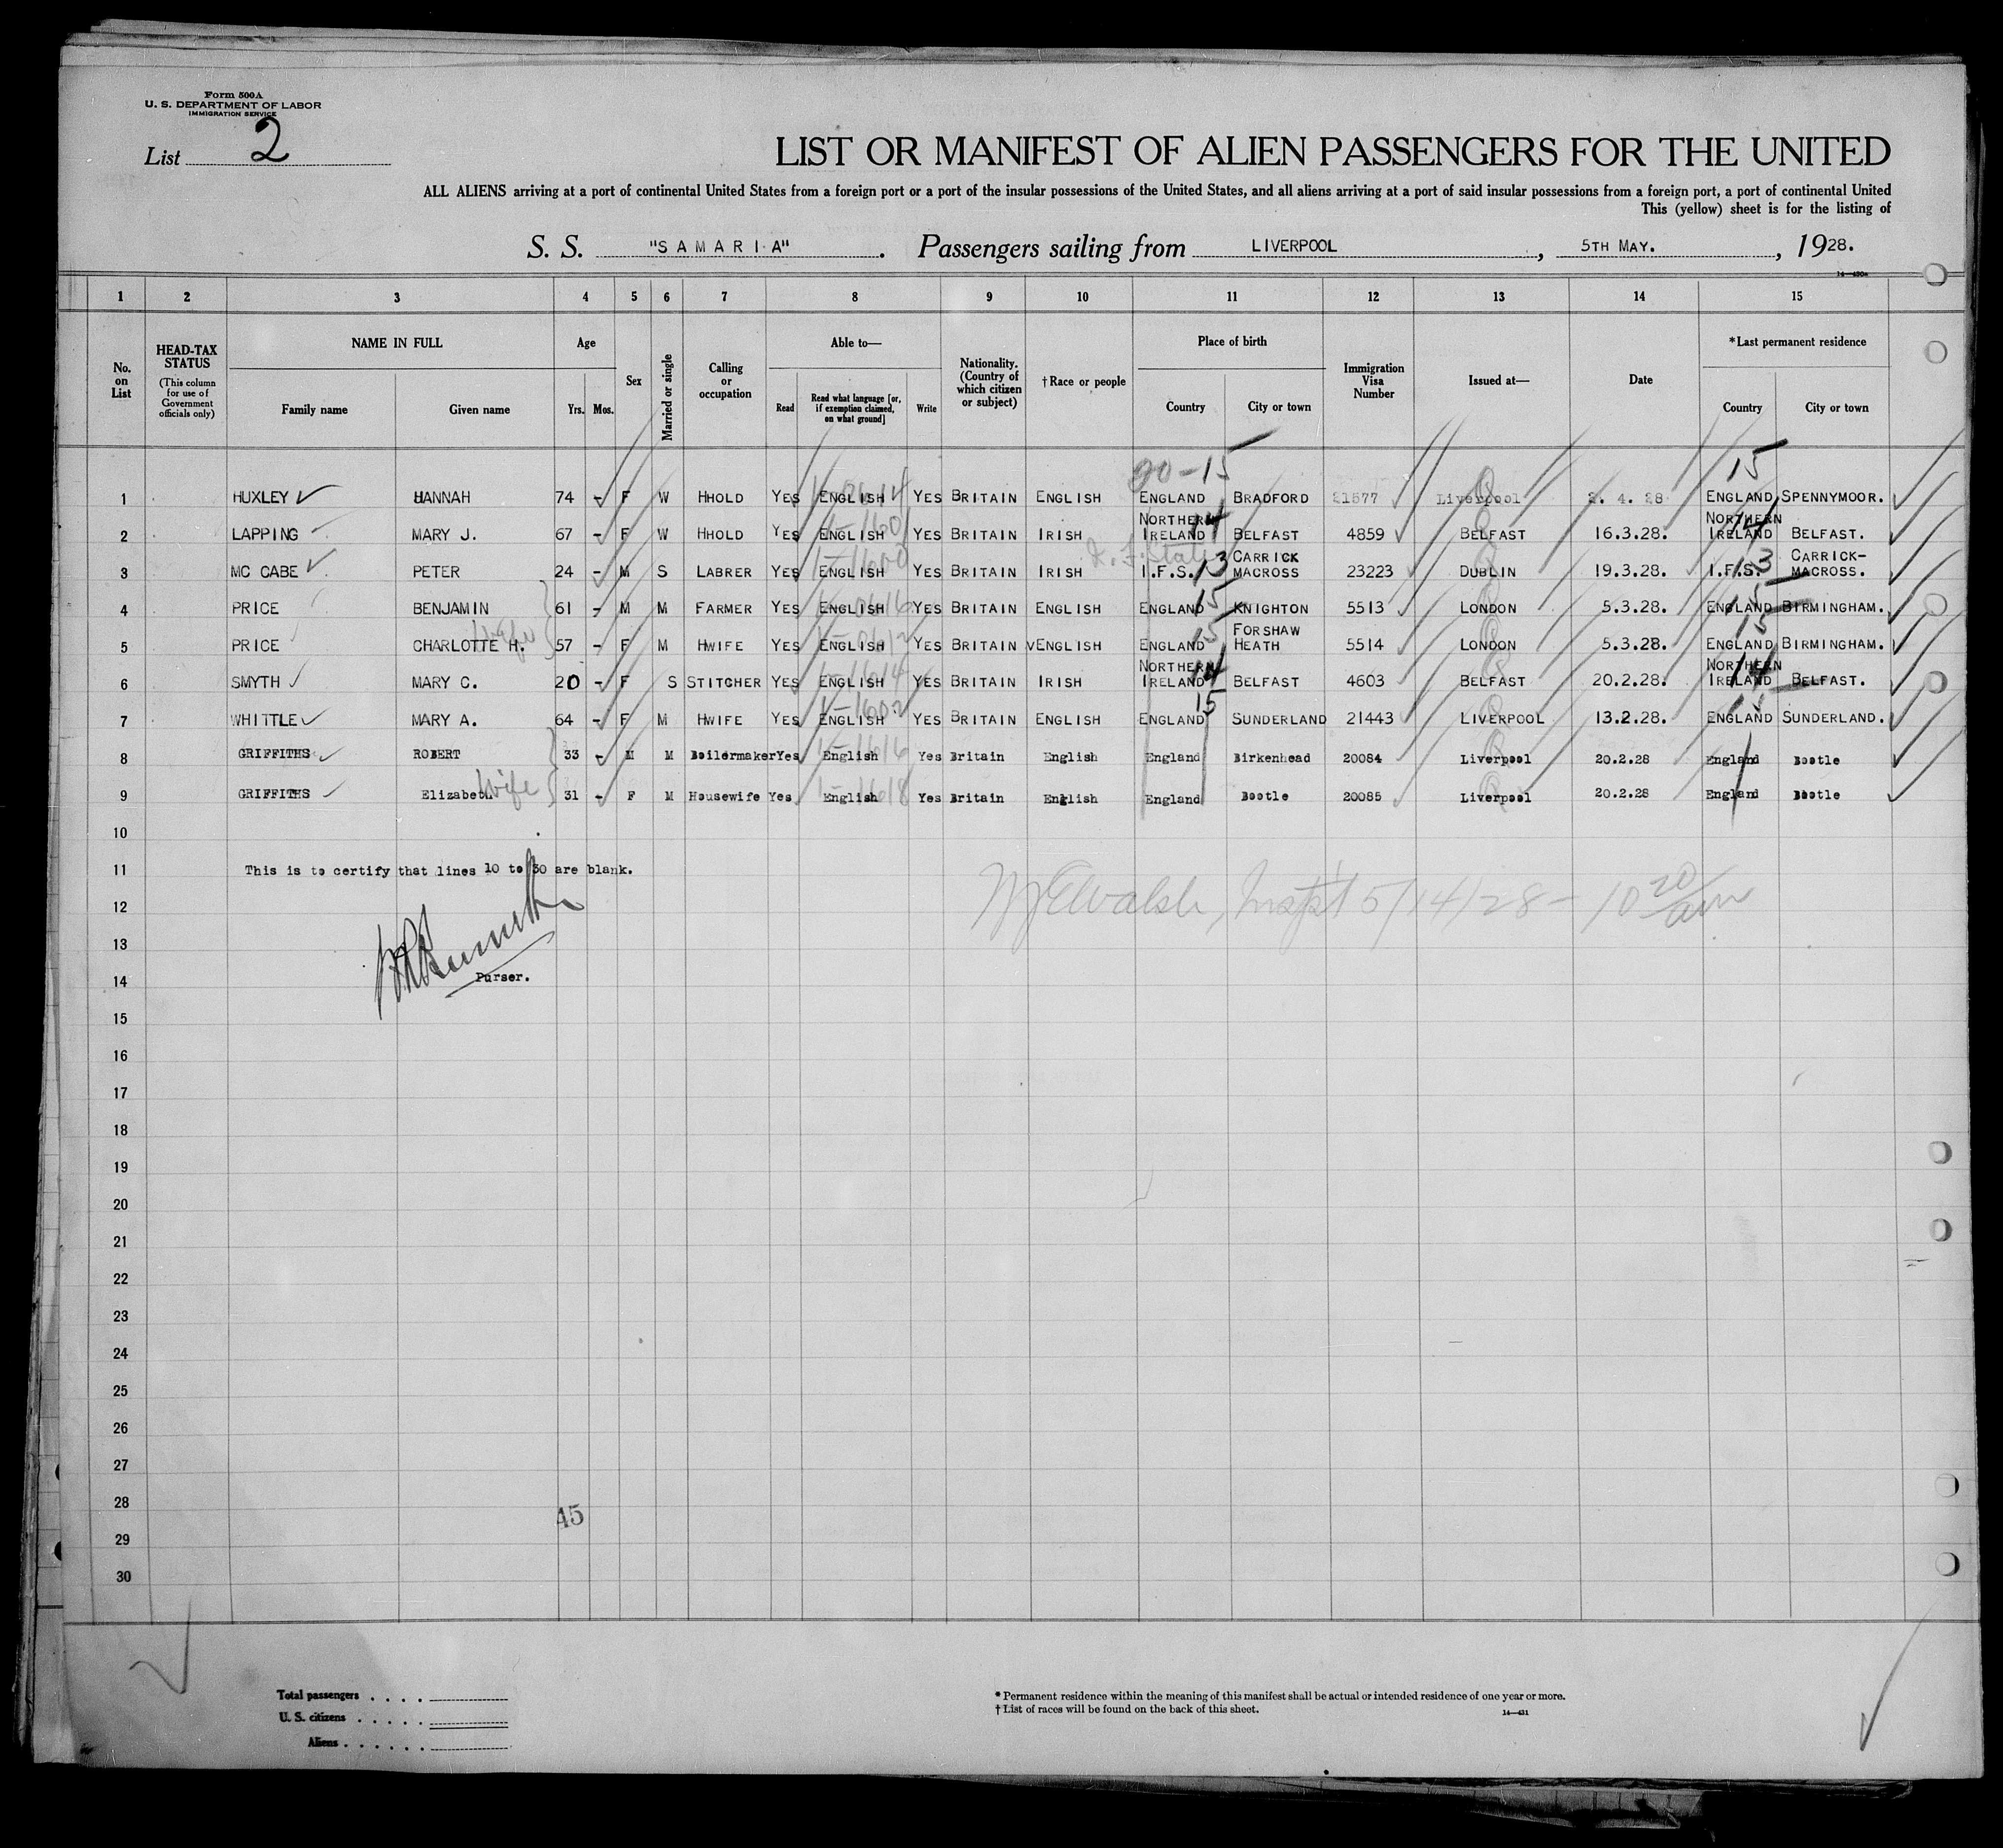 Form 500A
U. S. DEPARTMENT OF LABOR
IMMIGRATION SERVICE
List 2
LIST OR MANIFEST OF ALIEN PASSENGERS FOR THE UNITED
ALL ALIENS arriving at a port of continental United States from a foreign port or a port of the insular possessions of the United States, and all aliens arriving at a port of said insular possessions from a foreign port, a port of continental United
This (yellow) sheet is for the listing of
S. S. "SAMARIA". Passengers sailing from LIVERPOOL, 5TH MAY., 1928.
1 2 3 4 5 6 7 8 9 10 11 12 13 14 15
No. on List
HEAD-TAX STATUS (This column for use of Government officials only)
NAME IN FULL Family name Given name
Age Yrs. Mos.
Sex
Married or single
Calling or occupation
Able to— Read Read what language [or, if exemption claimed, on what ground] Write
Nationality. (Country of which citizen or subject)
†Race or people
Place of birth Country City or town
Immigration Visa Number
Issued at—
Date
*Last permanent residence Country City or town
90-15 15
1 HUXLEY HANNAH 74 - F W HHOLD YES ENGLISH YES BRITAIN ENGLISH ENGLAND BRADFORD 21577 Liverpool 2. 4. 28 ENGLAND SPENNYMOOR.
2 LAPPING MARY J. 67 - F W HHOLD YES ENGLISH YES BRITAIN IRISH NORTHERN IRELAND 14 BELFAST 4859 BELFAST 16.3.28. NORTHERN IRELAND 14 BELFAST.
3 MC CABE PETER 24 - M S LABRER YES ENGLISH YES BRITAIN IRISH I.F.S. 13 CARRICK MACROSS 23223 DUBLIN 19.3.28. I.F.S. 13 CARRICK-MACROSS.
4 PRICE BENJAMIN 61 - M M FARMER YES ENGLISH YES BRITAIN ENGLISH ENGLAND 15 KNIGHTON 5513 LONDON 5.3.28. ENGLAND 15 BIRMINGHAM.
5 PRICE CHARLOTTE H. wife 57 - F M HWIFE YES ENGLISH YES BRITAIN ENGLISH ENGLAND 15 FORSHAW HEATH 5514 LONDON 5.3.28. ENGLAND 15 BIRMINGHAM.
6 SMYTH MARY C. 20 - F S STITCHER YES ENGLISH YES BRITAIN IRISH NORTHERN IRELAND 14 BELFAST 4603 BELFAST 20.2.28. NORTHERN IRELAND 14 BELFAST.
7 WHITTLE MARY A. 64 - F M HWIFE YES ENGLISH YES BRITAIN ENGLISH ENGLAND 15 SUNDERLAND 21443 LIVERPOOL 13.2.28. ENGLAND 15 SUNDERLAND.
8 GRIFFITHS ROBERT 33 - M M Boilermaker Yes English Yes Britain English England Birkenhead 20084 Liverpool 20.2.28 England Bootle
9 GRIFFITHS Elizabeth wife 31 - F M Housewife Yes English Yes Britain English England Bootle 20085 Liverpool 20.2.28 England Bootle
10
11 This is to certify that lines 10 to 30 are blank.
12 Walsh, Inspt 5/14/28 - 10 20/am
13
14 Purser.
15
16
17
18
19
20
21
22
23
24
25
26
27
28
45
29
30
Total passengers . . . .
U. S. citizens . . . . .
Aliens . . . . . .
* Permanent residence within the meaning of this manifest shall be actual or intended residence of one year or more.
† List of races will be found on the back of this sheet.
14—431